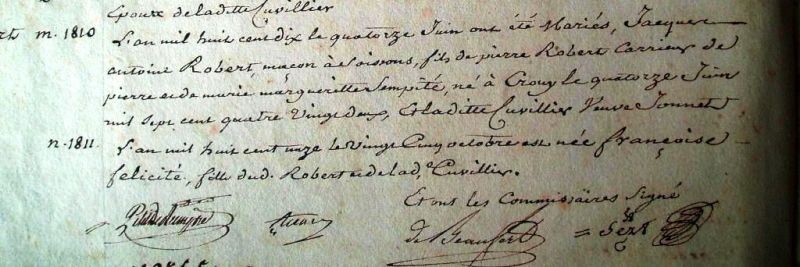 Epoux de laditte Cuvillier
m. 1810 L'an mil huit cent dix le quatorze Juin ont été Mariés, Jacques
antoine Robert, maçon à Soissons, fils de pierre Robert Carrieur de
pierre et de marie margueritte Sempité, né à Crouy le quatorze Juin
mil sept cent quatre Vingt deux, Et laditte Cuvillier Veuve Jonnet
n. 1811. L'an mil huit cent onze le Vingt Cinq octobre est née françoise
felicité, fille dud. Robert et de lad.e Cuvillier.
Et ont les Commissaires Signé
de Beaufort